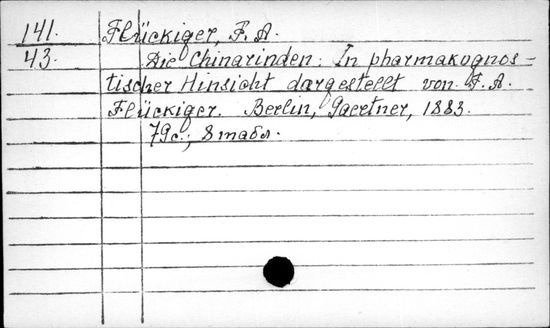 141. Flückiger, F. A.
43. Die Chinarinden: In pharmakognos-
tischer Hinsicht dargestellt von F. A.
Flückiger. Berlin, Gaertner, 1883.
79с.; 8 табл.